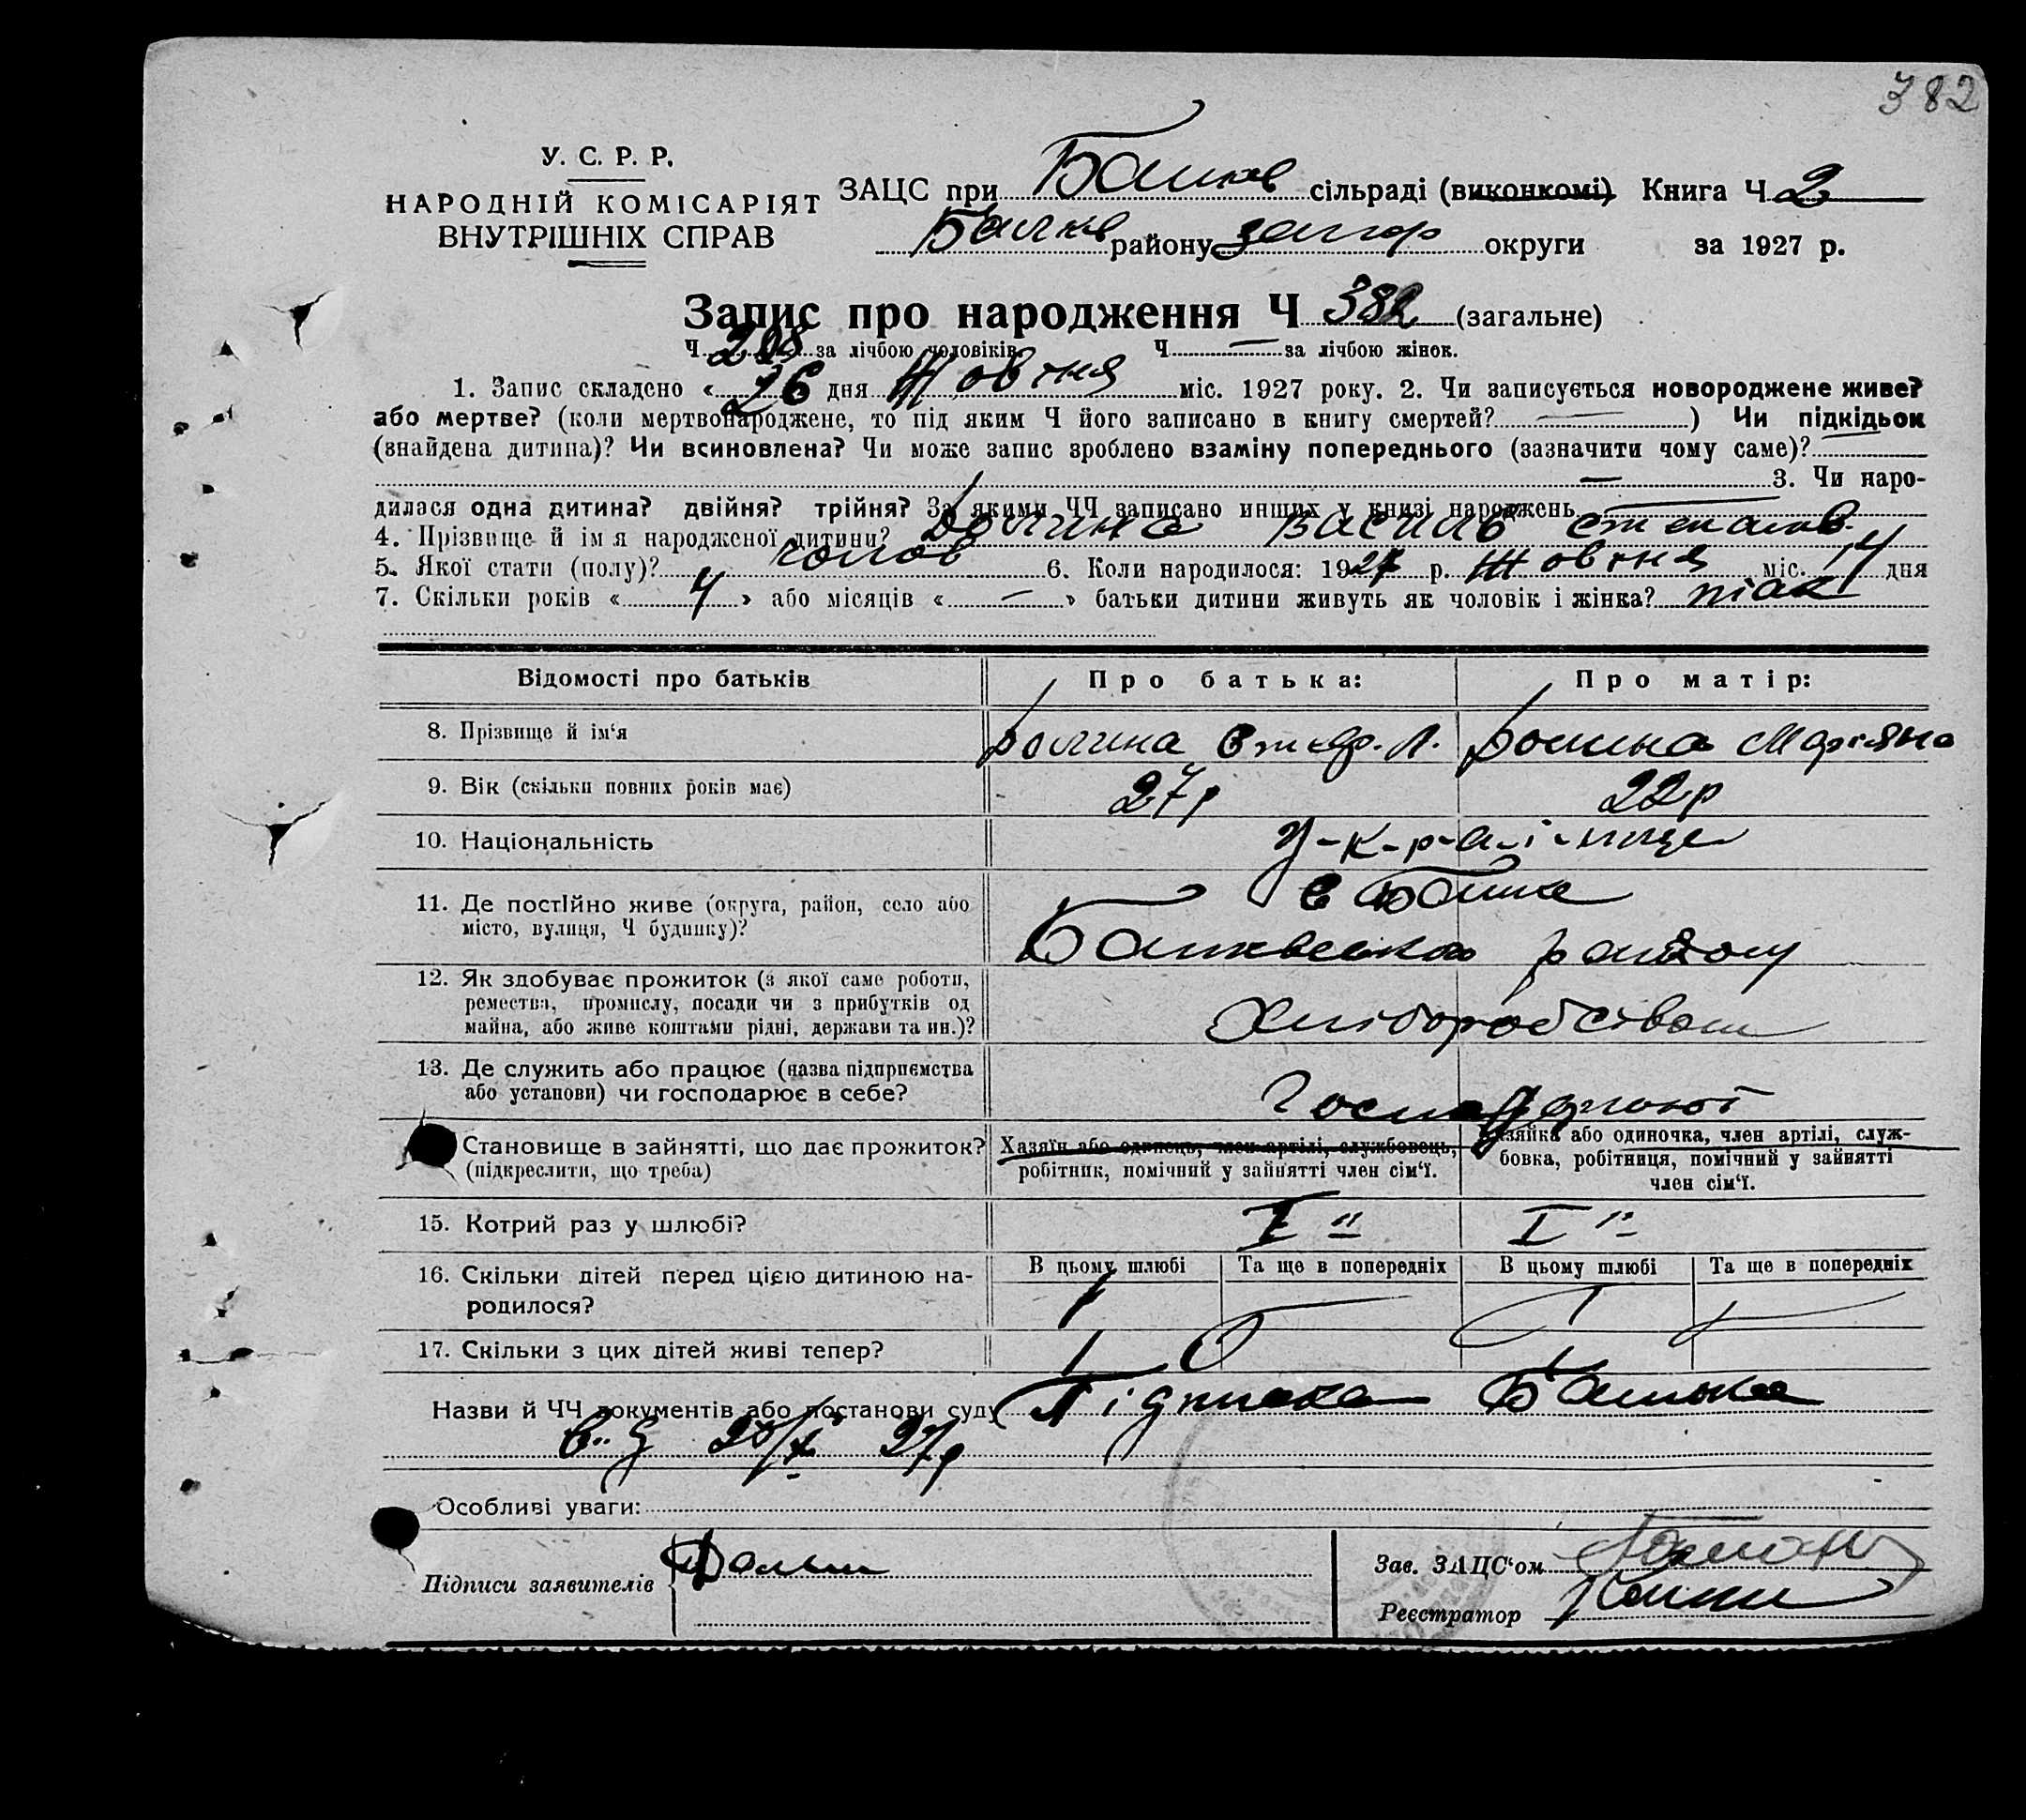 382
У. С. Р. Р.
НАРОДНІЙ КОМІСАРІЯТ
ВНУТРІШНІХ СПРАВ
ЗАЦС при сільраді (виконкомі) Книга Ч 2
району запор округи за 1927 р.
Запис про народження Ч 382 (загальне)
Ч за лічбою чоловіків Ч — за лічбою жінок.
1. Запис складено « 26 дня Жовтня міс. 1927 року. 2. Чи записується новороджене живе?
або мертве? (коли мертвонароджене, то під яким Ч його записано в книгу смертей? — ) Чи підкідьок
(знайдена дитина)? Чи всиновлена? Чи може запис зроблено взаміну попереднього (зазначити чому саме)? —
— 3. Чи наро-
дилася одна дитина? двійня? трійня? За якими ЧЧ записано инших у книзі народжень —
4. Прізвище й ім я народженої дитини? Василь
5. Якої стати (полу)? чолов 6. Коли народилося: 1927 р. Жовтня міс. 14 дня
7. Скільки років « 4 » або місяців « — » батьки дитини живуть як чоловік і жінка? так
Відомості про батьків Про батька: Про матір:
8. Прізвище й ім‘я
9. Вік (скільки повних років має) 27р 22р
10. Національність У-к-р-а-ї-нце
11. Де постійно живе (округа, район, село або
місто, вулиця, Ч будинку)?
району
12. Як здобуває прожиток (з якої саме роботи,
ремества, промислу, посади чи з прибутків од
майна, або живе коштами рідні, держави та ин.)?
Хліборобством
13. Де служить або працює (назва підприємства
або установи) чи господарює в себе?
Господарюют
Становище в зайнятті, що дає прожиток?
(підкреслити, що треба)
Хазяїн або одинець, член артілі, службовець,
робітник, помічний у зайнятті член сім‘ї.
Хазяйка або одиночка, член артілі, служ-
бовка, робітниця, помічний у зайнятті
член сім‘ї.
15. Котрий раз у шлюбі? I " I "
16. Скільки дітей перед цією дитиною на-
родилося?
В цьому шлюбі Та ще в попередніх В цьому шлюбі Та ще в попередніх
1 — 1 —
17. Скільки з цих дітей живі тепер? 1
Назви й ЧЧ документів або постанови суду Підписка Батька
27р
Особливі уваги:
Підписи заявителів
Зав. ЗАЦС‘ом
Реєстратор